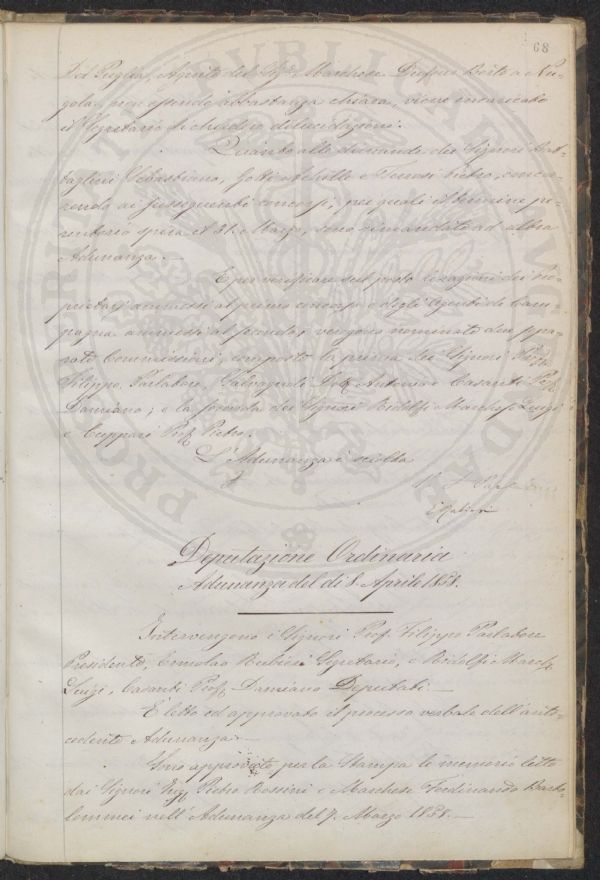 68
Del Puglia, Agente del Sig.r Marchese Dufour Berte a Nu-
gola, non essendo abbastanza chiara, viene incaricato
il Segretario di chiedere dilucidazioni.
Quanto alle dimande dei Signori Bat-
taglini Sebastiano, Gotti Achille e Pietro, concor-
rendo ai susseguenti concorsi, pei quali il termine pe-
rentorio spira il 31. Marzo, sono rimandate ad altra
Adunanza.—
E per verificare sul posto le ragioni dei Pro-
prietarj ammessi al primo concorso e degli Agenti di Cam-
pagna ammessi al secondo, vengono nominate due sepa-
rate Commissioni, composte la prima dei Signori Prof.
Filippo Parlatore, Salvagnoli Antonio e Casanti Prof.
Damiano; e la seconda dei Signori Ridolfi March. Luigi
e Cuppari Prof. Pietro.
L'Adunanza è sciolta
Deputazione Ordinaria
Adunanza del dì 8. Aprile 1858.
Intervengono i Signori Prof. Filippo Parlatore
Presidente, Ermolao Rubieri Segretario, e Ridolfi March.
Luigi, Casanti Prof. Damiano Deputati.—
È letto ed approvato il processo verbale dell'ante-
cedente Adunanza.—
Sono approvate per la Stampa le memorie lette
dai Signori Ing. Pietro Rossini e Marchese Ferdinando Barto-
lommei nell'Adunanza del 7. Marzo 1858.—